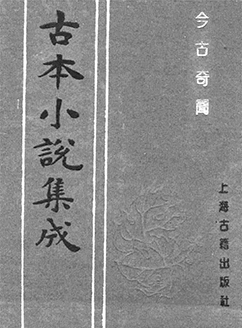 今古奇聞
古本小說集成
上海古籍出版社